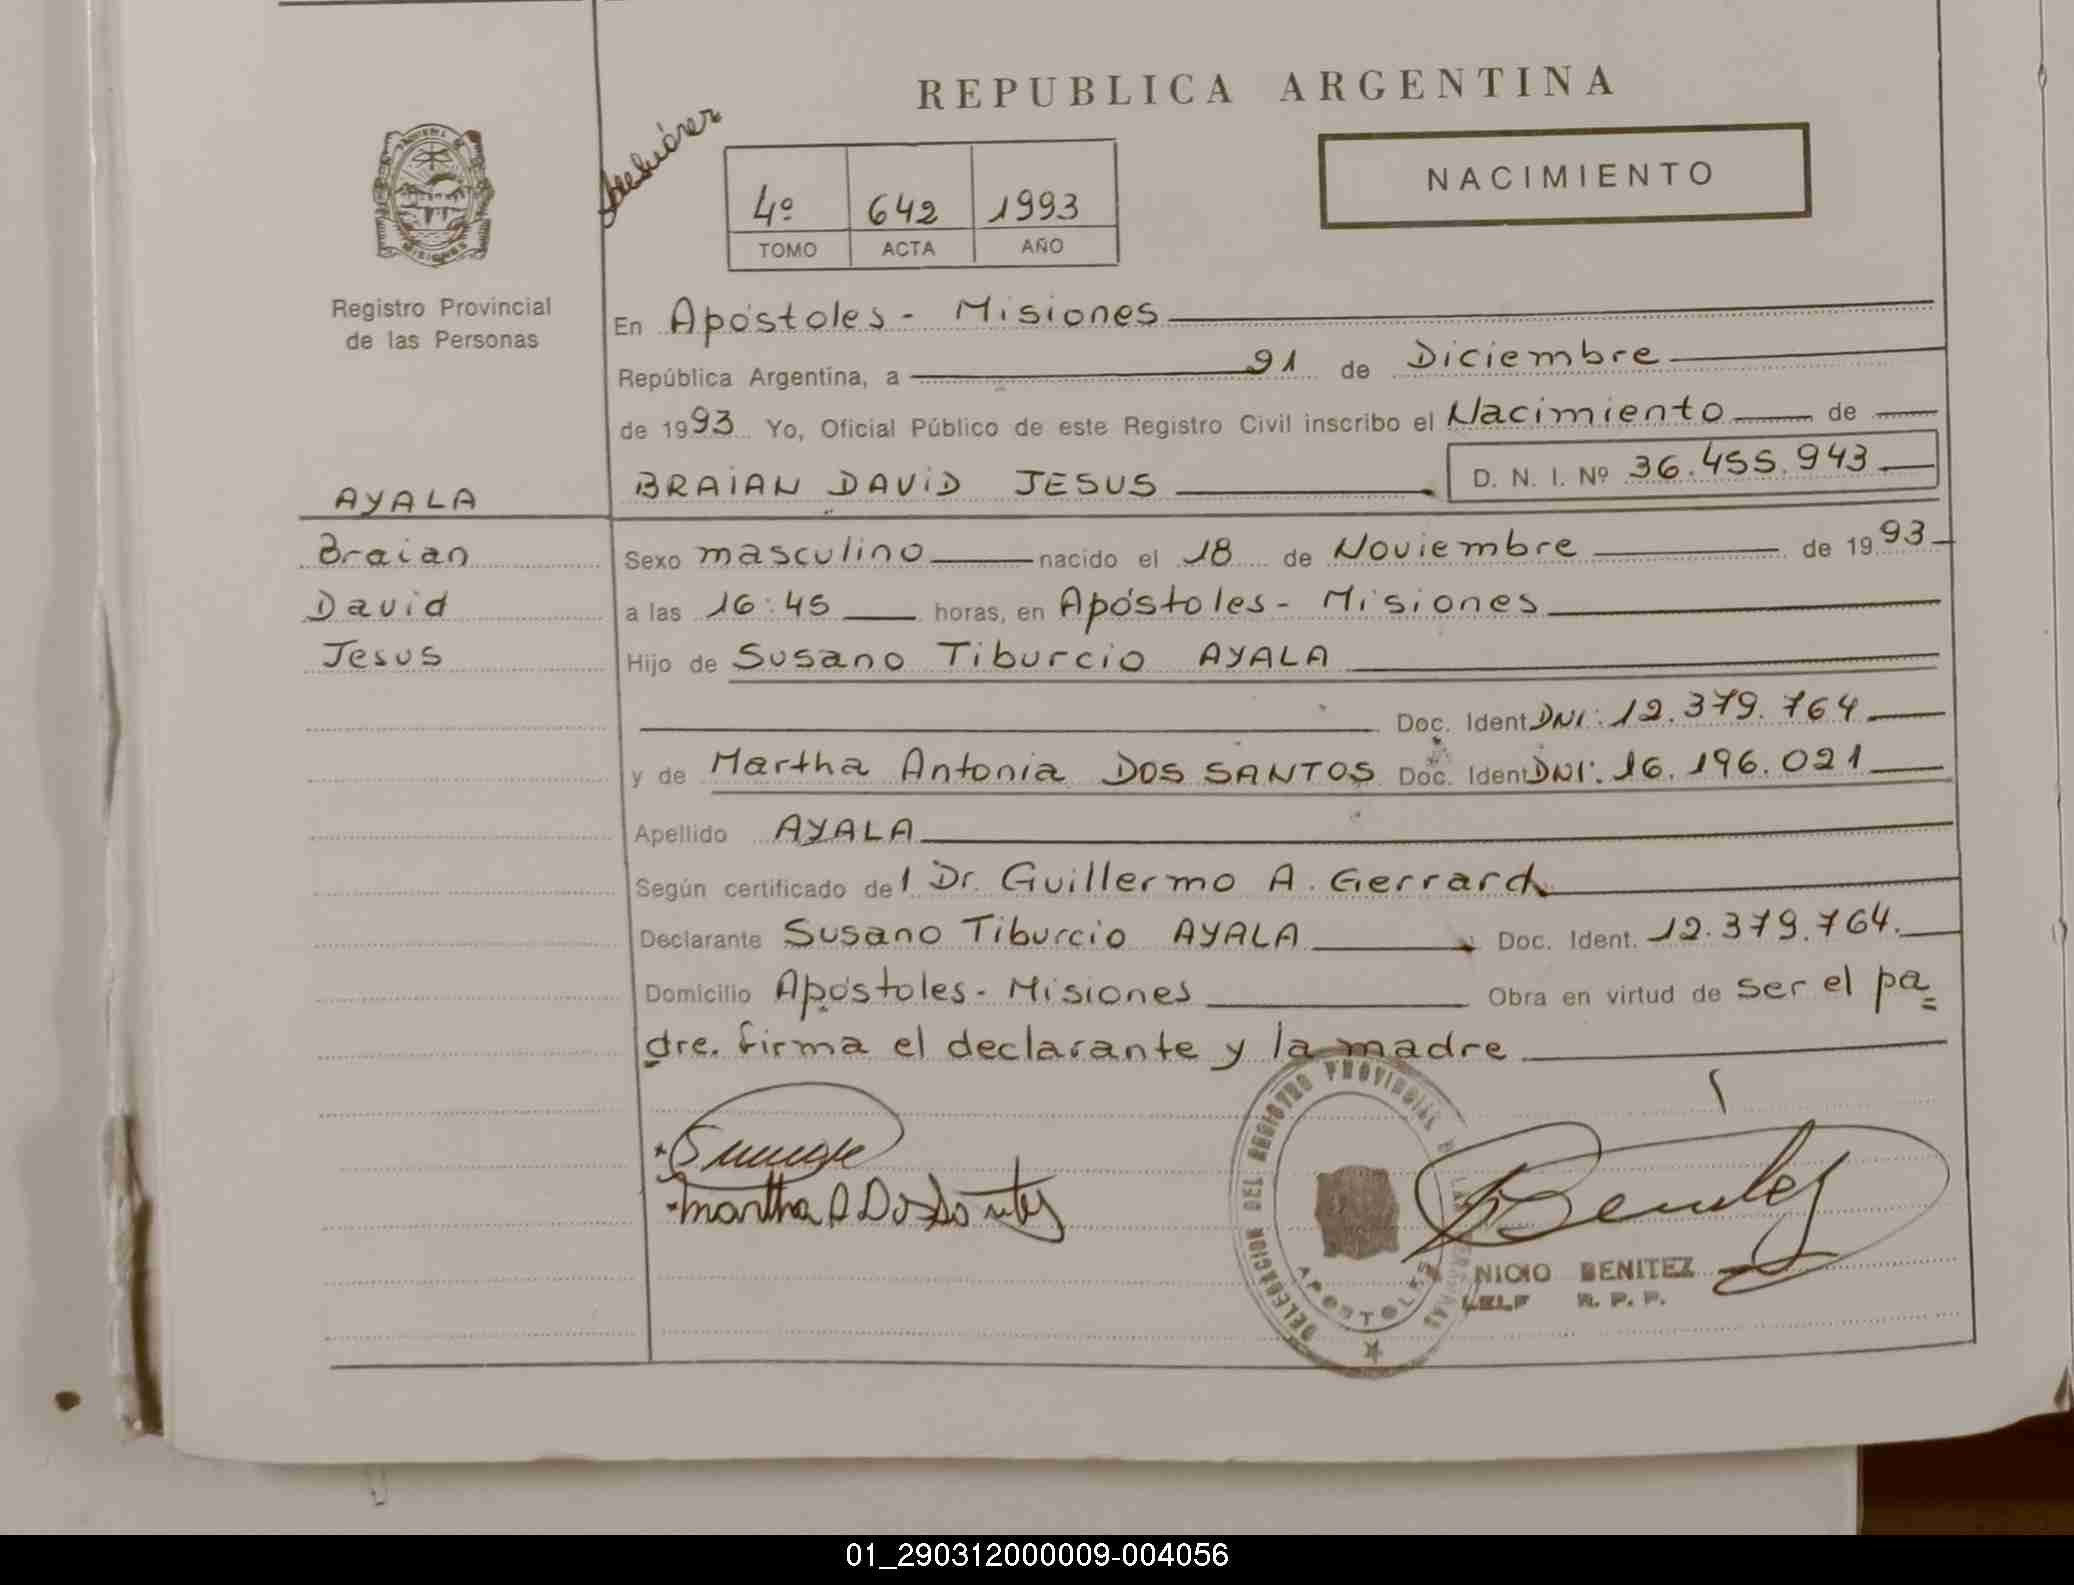 REPUBLICA ARGENTINA
NACIMIENTO
4º 642 1993
TOMO ACTA AÑO
MISIONES
Registro Provincial
de las Personas
En Apóstoles - Misiones
República Argentina, a 21 de Diciembre
de 1993 Yo, Oficial Público de este Registro Civil inscribo el Nacimiento de
AYALA
BRAIAN DAVID JESUS D. N. I. Nº 36.455.943
Braian
David
Jesus
Sexo masculino nacido el 18 de Noviembre de 1993
a las 16:45 horas, en Apóstoles - Misiones
Hijo de Susano Tiburcio AYALA
Doc. Ident DNI: 12.379.764
y de Martha Antonia DOS SANTOS Doc. Ident DNI: 16.196.021
Apellido AYALA
Según certificado del Dr. Guillermo A. Gerrard
Declarante Susano Tiburcio AYALA Doc. Ident. 12.379.764.
Domicilio Apóstoles - Misiones Obra en virtud de ser el pa=
dre. firma el declarante y la madre
Martha A Dos Santos
DELEGACION DEL REGISTRO PROVINCIAL DE LAS PERSONAS
APOSTOLES
Benitez
NICIO BENITEZ
R. P. P.
01_290312000009-004056